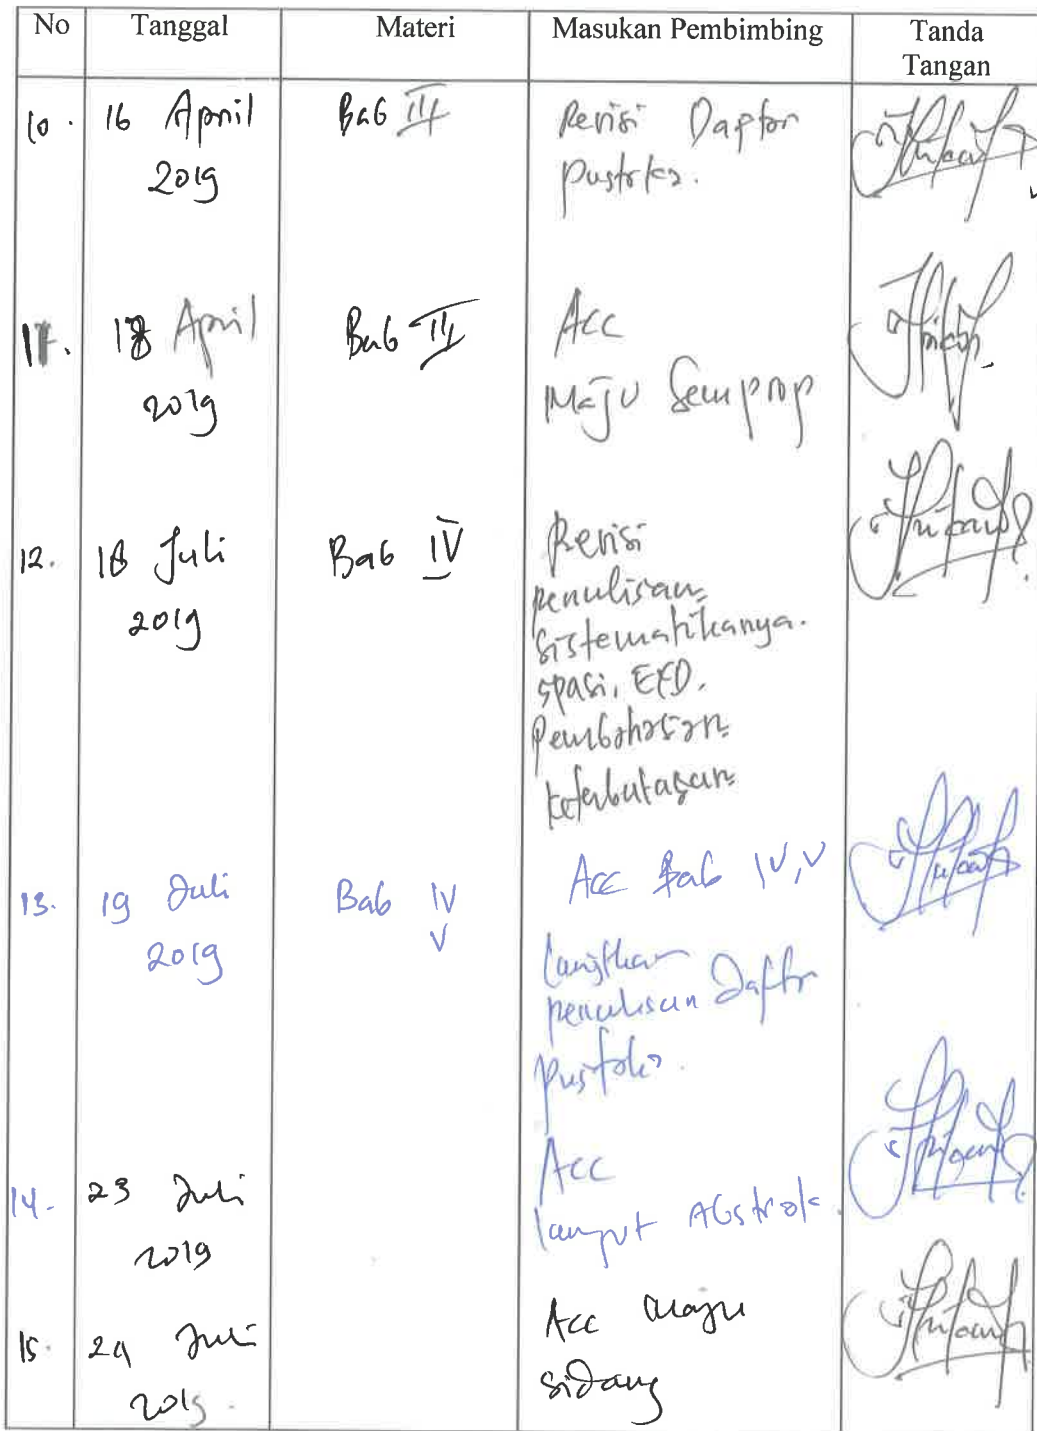 No Tanggal Materi Masukan Pembimbing Tanda
Tangan
10. 16 April Bab III Revisi Daptar
2019 Pustaka.
11. 18 April Bab III Acc
2019 Maju Semprop
12. 18 Juli Bab IV Revisi
2019 penulisan
sistematikanya.
spasi, EYD.
Pembahasan
keterbatasan
13. 19 Juli Bab IV Acc Bab IV, V
2019 V
penulisan Daftar
Pustaka.
14. 23 Juli Acc
2019 lanjut Abstrak.
15. 24 Juli Acc maju
2019. sidang